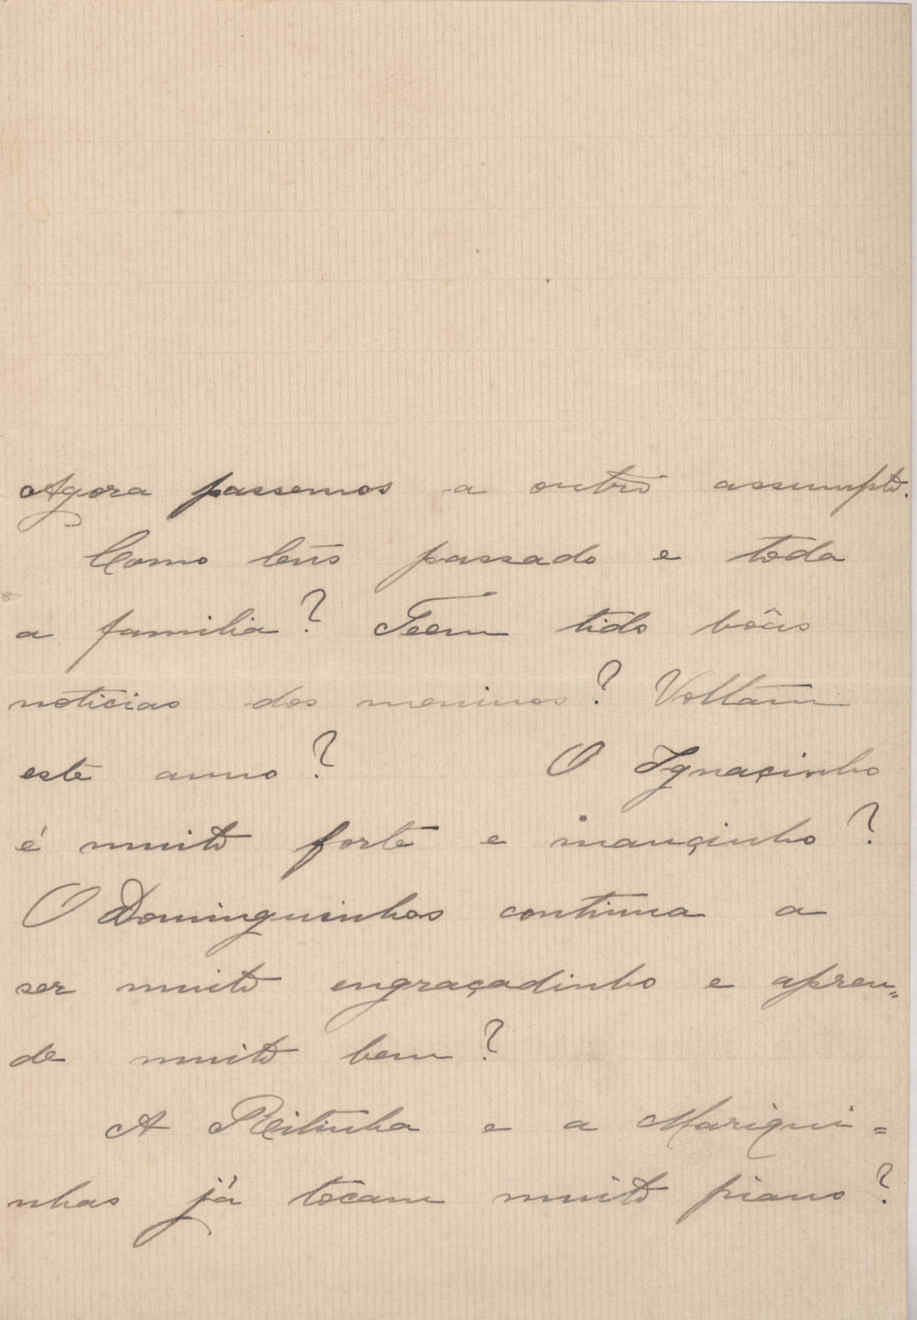 Agora passemos a outro assumpto.
Como tens passado e toda
a familia? Teem tido bôas
noticias dos meninos? Voltam
este anno? O Ignacinho
é muito forte e mançinho?
O Dominguinhos continua a
ser muito engraçadinho e apren=
de muito bem?
A Ritinha e a Mariqui=
nhas já tocam muito piano?